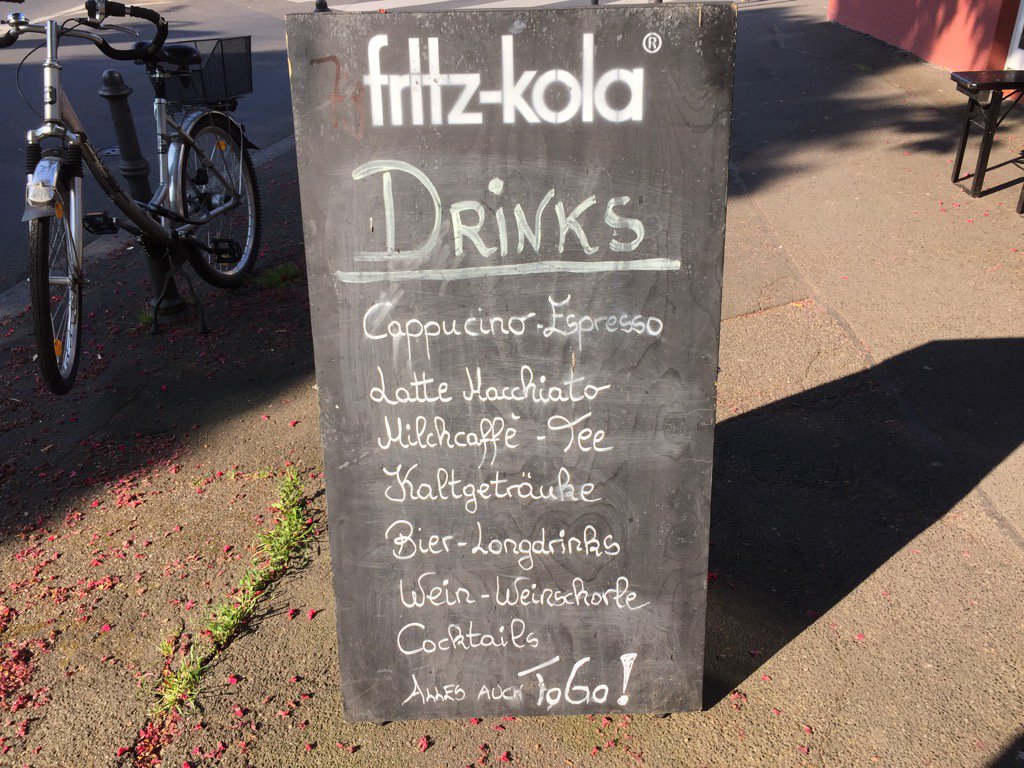 fritz-kola®
DRiNKS
Cappucino-Espresso
Latte Macchiato
Milchcaffè - Tee
Kaltgetränke
Bier-Longdrinks
Wein-Weinschorle
Cocktails
ALLES AUCH ToGo!